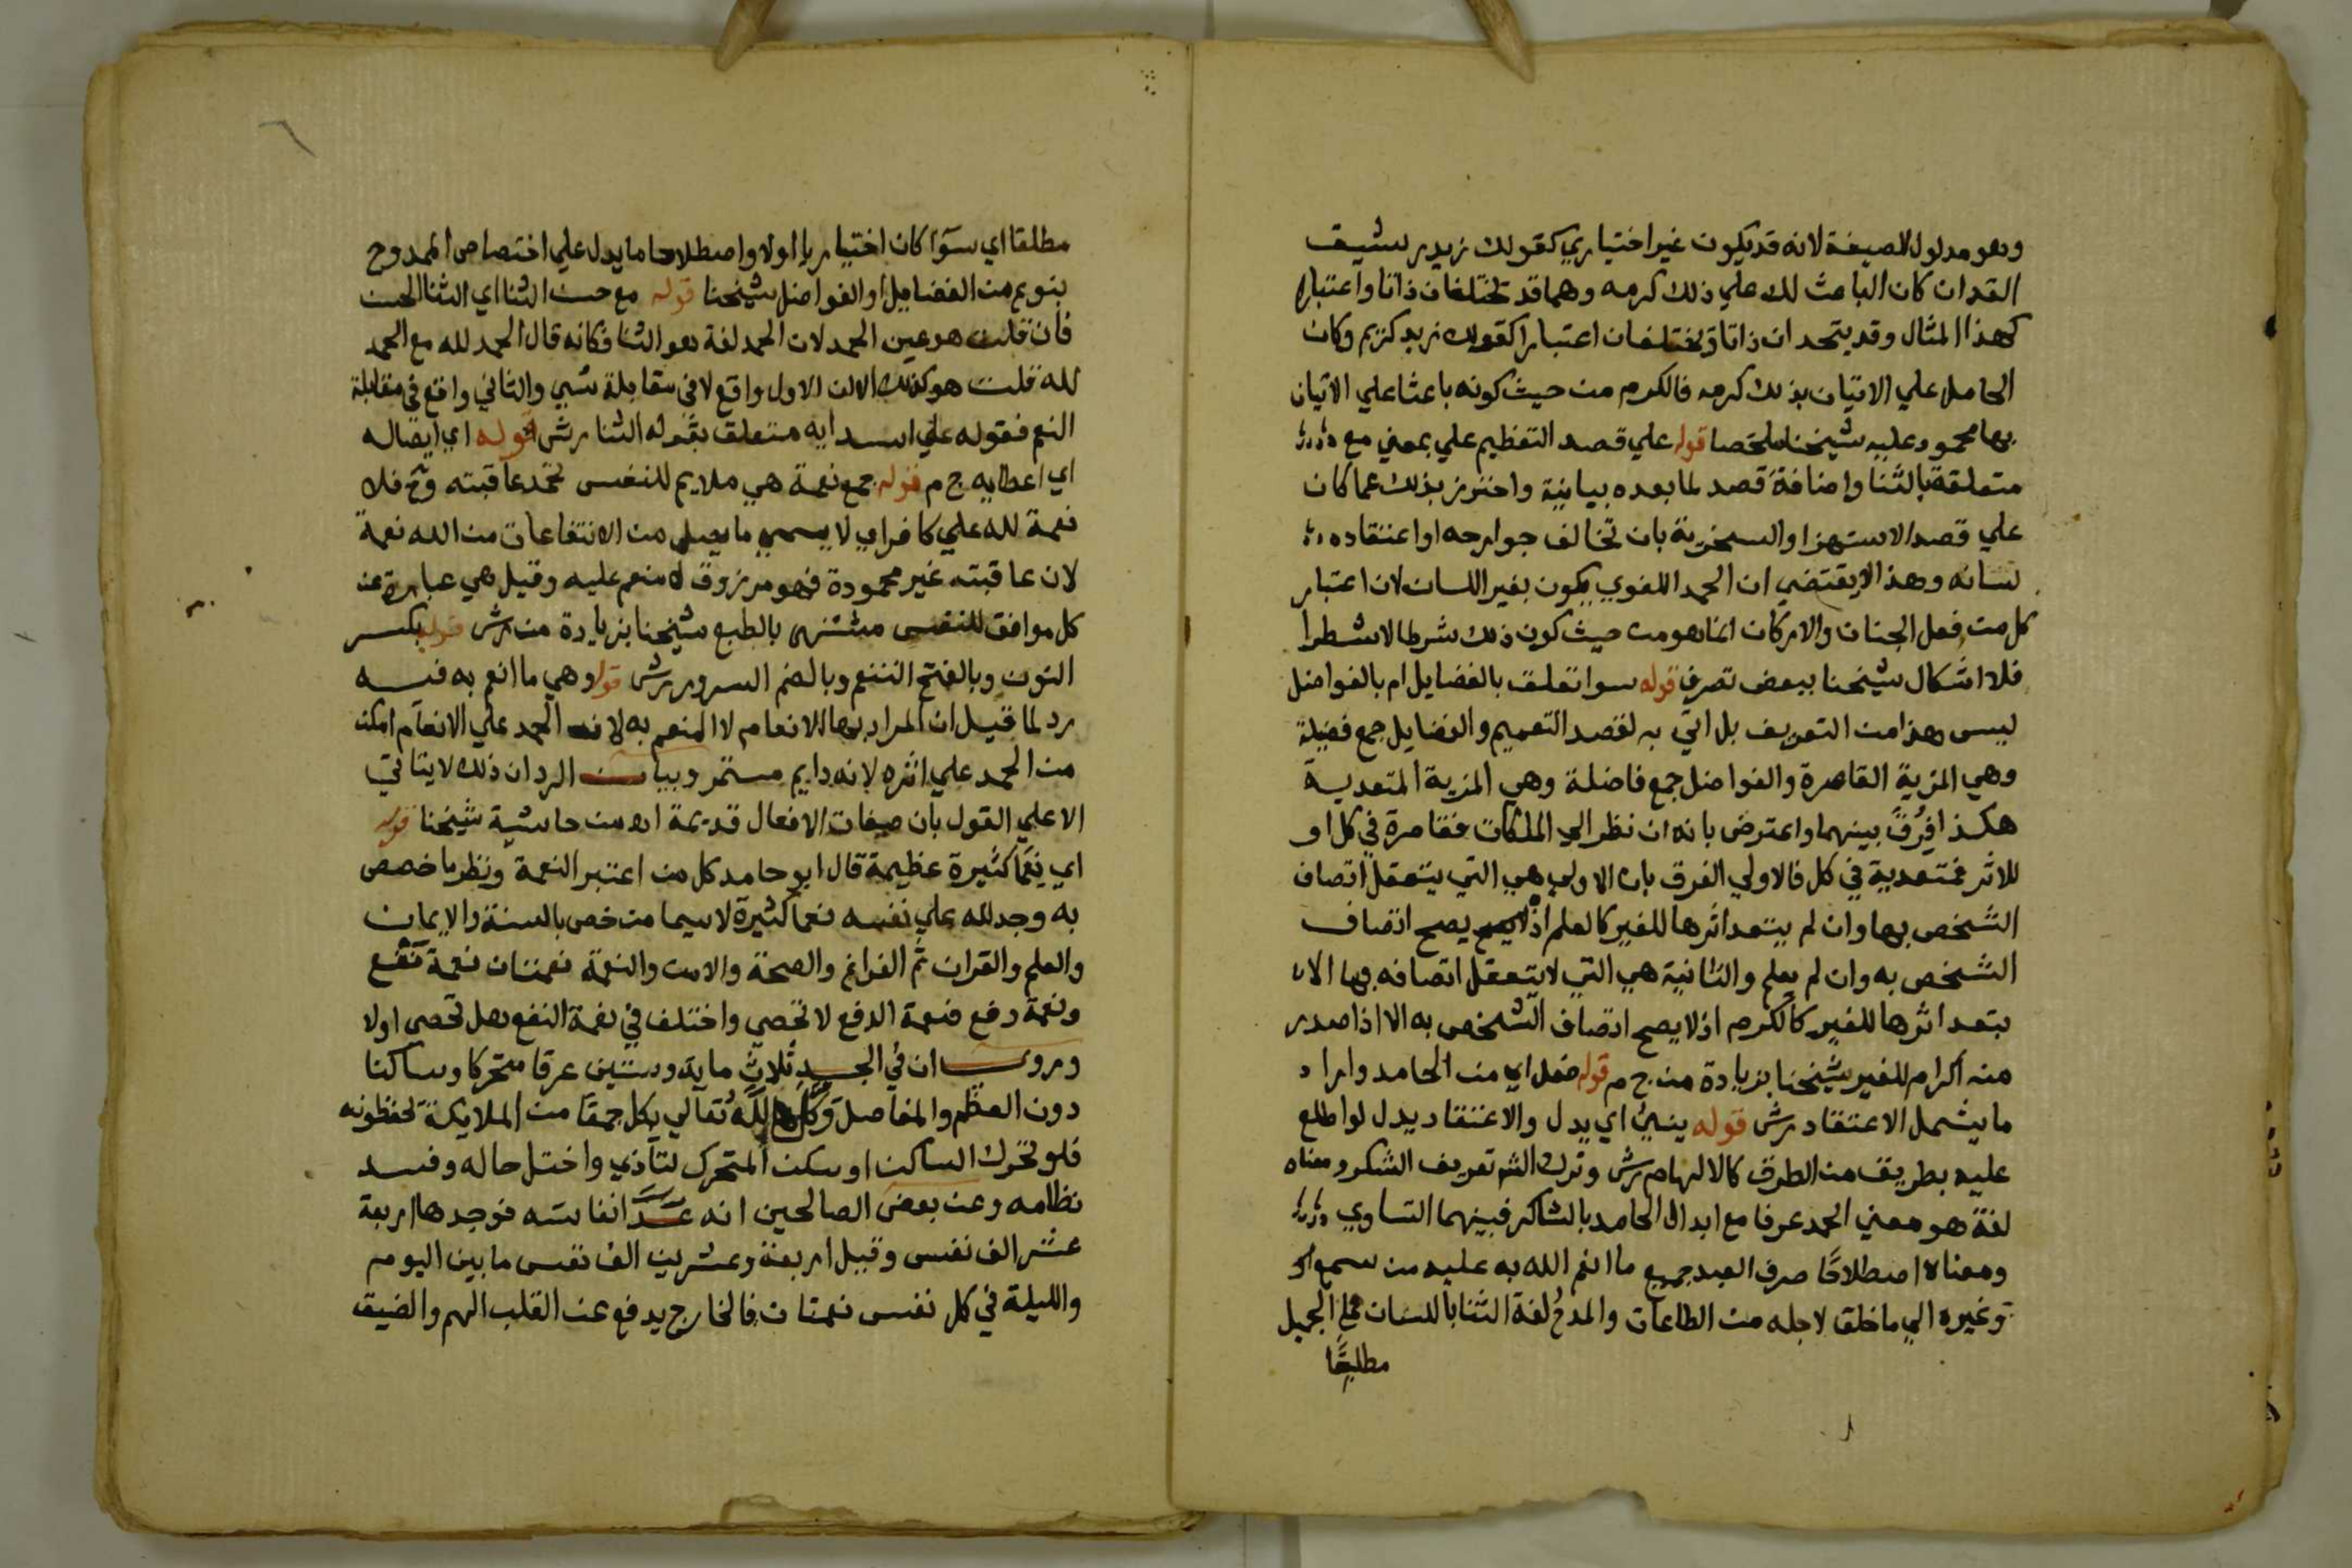 وهو مدلول الصيغة لانه قد يكون غير اختياري كقولك زيد رشيق
القد ان كان الباعث لك علي ذلك كرمه وهما قد تختلفان ذاتا واعتبارا
كهذا المثال وقد يتحد ان ذاتا ويختلفان اعتبارا كقولك زيد كريم وكان
الحامل علي الاتيان بذلك كرمه فالكرم من حيث كونه باعثا علي الاتيان
بها محمود عليه شيخنا ملخصا قوله علي قصد التعظيم علي بمعني مع
متعلقة بالثنا واضافة قصد لما بعده بيانية واحترز بذلك عما كان
علي قصد الاستهزا والسخرية بان تخالف جوارحه او اعتقاده
لسانه وهذا لا يقتضي ان الحمد اللغوي يكون بغير اللسان لان اعتبار
كل من فعل الجنان والاركان انما هو من حيث كون ذلك شرطا لا شطرا
فلا اشكال شيخنا ببعض تصرف قوله سوا تعلق بالفضايل ام بالفواضل
ليس هذا من التعريف بل اتي به لقصد التعميم والفضايل جمع فضيلة
وهي المزية القاصرة والفواضل جمع فاضلة وهي المزية المتعدية
هكذا فرق بينهما واعترض بانه ان نظر الي الملكات فقاصرة في كل او
للاثر فمتعدية في كل فالاولي الفرق بان الاولي هي التي يتعقل اتصاف
الشخص بها وان لم يتعد اثرها للغير كالعلم اذ يصح اتصاف
الشخص به وان لم يعلم والثانية هي التي لا يتعقل اتصافه بها الا ان
يتعد اثرها للغير كالكرم اذ لا يصح اتصاف الشخص به الا اذا صدر
منه اكرام للغير شيخنا بزيادة من ح م قوله فعل اي من الحامد واراد
ما يشمل الاعتقاد رش قوله ينبئ اي يدل والاعتقاد يدل لو اطلع
عليه بطريق من الطرق كالالهام رش وترك الش تعريف الشكر ومعناه
لغة هو معني الحمد عرفا مع ابدال الحامد بالشاكر فبينهما التساوي
ومعناه اصطلاحا صرف العبد جميع ما انعم الله به عليه من سمع او
وغيره الي ما خلق لاجله من الطاعات والمدح لغة الثنا باللسان علي الجميل
مطلقا
مطلقا اي سوا كان اختياريا اولا واصطلاحا ما يدل علي اختصاص الممدوح
بنوع من الفضايل او الفواضل شيخنا قوله مع حسن الثنا اي الثنا الحسن
فان قلت هو عين الحمد لان الحمد لغة هو الثنا فكانه قال الحمد لله مع الحمد
لله قلت هو كذلك الا ان الاول واقع لا في مقابلة شي والثاني واقع في مقابلة
النعم فقوله علي اسدايه متعلق بقوله الثنا رش قوله اي ايصاله
اي اعطايه ح م قوله جمع نعمة هي ملايم للنفس تحمد عاقبته وح فلا
نعمة لله علي كافر اي لا يسمي ما يصل من الانتفاعات من الله نعمة
لان عاقبته غير محمودة فهو مرزوق لا منعم عليه وقيل هي عبارة عن
كل موافق للنفس مشتهي بالطبع شيخنا بزيادة من رش قوله بكسر
النون وبالفتح التنعم وبالضم السرور رش قوله وهي ما انعم به فسه
رد لما قيل ان المراد بها الانعام لا المنعم به لان الحمد علي الانعام امكن
من الحمد علي اثره لانه دايم مستمر وبيان الرد ان ذلك لا يتاتي
الا علي القول بان صفات الافعال قديمة اه من حاشية شيخنا قوله
اي نعما كثيرة عظيمة قال ابو حامد كل من اعتبر النعمة ونظر ما خصص
به وجد لله علي نفسه نعما كثيرة لا سيما من خص بالسنة والايمان
والعلم والقران ثم الفراغ والصحة والامن والنعمة نعمتان نعمة نفع
ونعمة دفع فنعمة الدفع لا تحصي واختلف في نعمة النفع هل تحصي اولا
وروي ان في الجسد ثلاث ماية وستين عرقا متحركا وساكنا
دون العظم والمفاصل وكل الله تعالي بكل جمعا من الملايكة تحفظونه
فلو تحرك الساكن او سكن المتحرك لتاذي واختل حاله وفسد
نظامه وعن بعض الصالحين انه عد انفاسه فوجدها اربعة
عشر الف نفس وقيل اربعة وعشرين الف نفس ما بين اليوم
والليلة في كل نفس نعمتان فالخارج يدفع عن القلب الهم والضيق